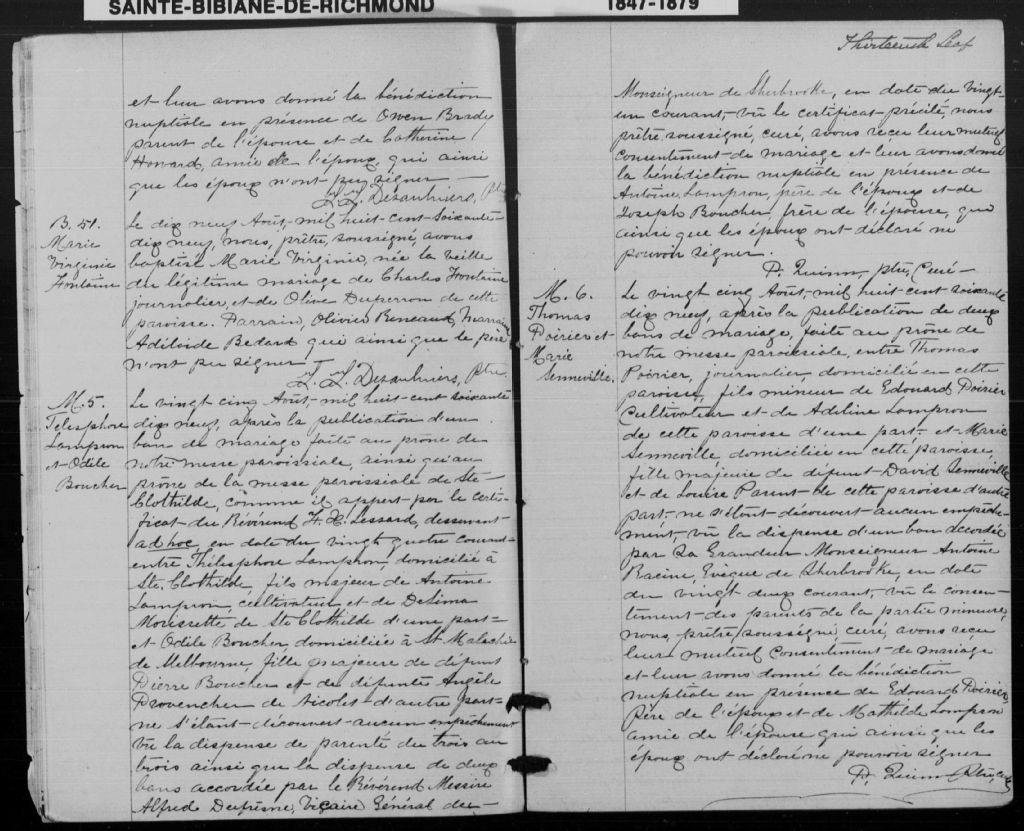 SAINTE-BIBIANE-DE-RICHMOND
1847-1879
et leur avons donné la bénédiction
nuptiale en présence de Owen Brady
parent de l'épouse et de Catherine
Howard, amie de l'époux, qui ainsi
que les époux n'ont pu signer
L. L. Desaulniers, Ptre
B. 51.
Marie
Virginie
Fontaine
Le dix neuf Août, mil huit-cent-soixante-
dix neuf, nous, prêtre, soussigné, avons
baptisé Marie Virginie, née la veille
du légitime mariage de Charles Fontaine
journalier, et de Olive Duperron de cette
paroisse. Parrain, Olivier Marraine
Adiloide Bedard qui ainsi que le père
n'ont pu signer
L. L. Desaulniers, Ptre.
M. 5.
Telesphore
Lampron
et Odile
Boucher
Le vingt cinq Août, mil huit-cent soixante
dix neuf, après la publication d'un
ban de mariage faite au prône de
notre messe paroissiale, ainsi qu'au
prône de la messe paroissiale de Ste-
Clothilde, comme il appert par le certi-
ficat du Révérend F. X. Lessard, desservant
ad hoc, en date du vingt quatre courant
entre Thélesphore Lamphron, domicilié à
Ste. Clothilde, fils majeur de Antoine
Lampron, cultivateur et de Delima
Morissette de Ste Clothilde d'une part-
et Odile Boucher domiciliée à St Malachie
de Melbourne, fille majeure de défunt
Pierre Boucher et de défunte Angèle
Provencher de Nicolet d'autre part-
ne s'étant découvert aucun empêchement
vu la dispense de parenté du trois au
trois ainsi que la dispense de deux
bans accordée par le Révérend Messire
Alfred Dufresne, Vicaire Général de
Thirteenth Leaf
Monseigneur de Sherbrooke, en date du vingt-
un courant, vu le certificat précité, nous
prêtre soussigné, curé, avons reçu leur mutuel
consentement de mariage et leur avons donné
la bénédiction nuptiale en présence de
Antoine Lampron, père de l'époux et de
Joseph Boucher, frère de l'épouse, qui
ainsi que les époux ont déclaré ne
pouvoir signer.
P. Quinn, ptre, Curé-
M. 6.
Thomas
Poirier et
Marie
Senneville.
Le vingt cinq Août, mil huit cent soixante
dix neuf, après la publication de deux
bans de mariage, faite au prône de
notre messe paroissiale, entre Thomas
Poirier, journalier, domicilié en cette
paroisse, fils mineur de Edouard Poirier
Cultivateur et de Adeline Lampron
de cette paroisse d'une part, et Marie
Senneville domiciliée en cette paroisse,
fille majeure de défunt David Senneville
et de Louise Parent de cette paroisse d'autre
part, ne s'étant découvert aucun empêche-
ment, vu la dispense d'un ban accordée
par Sa Grandeur Monseigneur Antoine
Racine, Evêque de Sherbrooke, en date
du vingt deux courant, vu le consen-
tement des parents de la partie mineure,
nous, prêtre soussigné, curé, avons reçu
leur mutuel consentement de mariage
et leur avons donné la bénédiction
nuptiale en présence de Edouard Poirier
Père de l'époux et de Mathilde Lampron
amie de l'épouse qui ainsi que les
époux ont déclaré ne pouvoir signer
P. Quinn Ptre, Curé